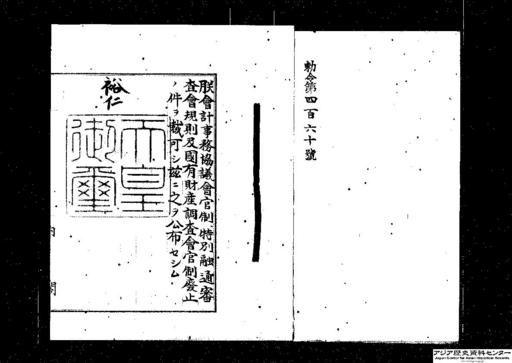 勅令第四百六十號
朕會計事務協議會官制、特別融通審
査會規則及國有財産調査會官制廢止
ノ件ヲ裁可シ茲ニ之ヲ公布セシム
裕仁
天皇
御璽
内
閣
アジア歴史資料センター
Japan Center for Asian Historical Records